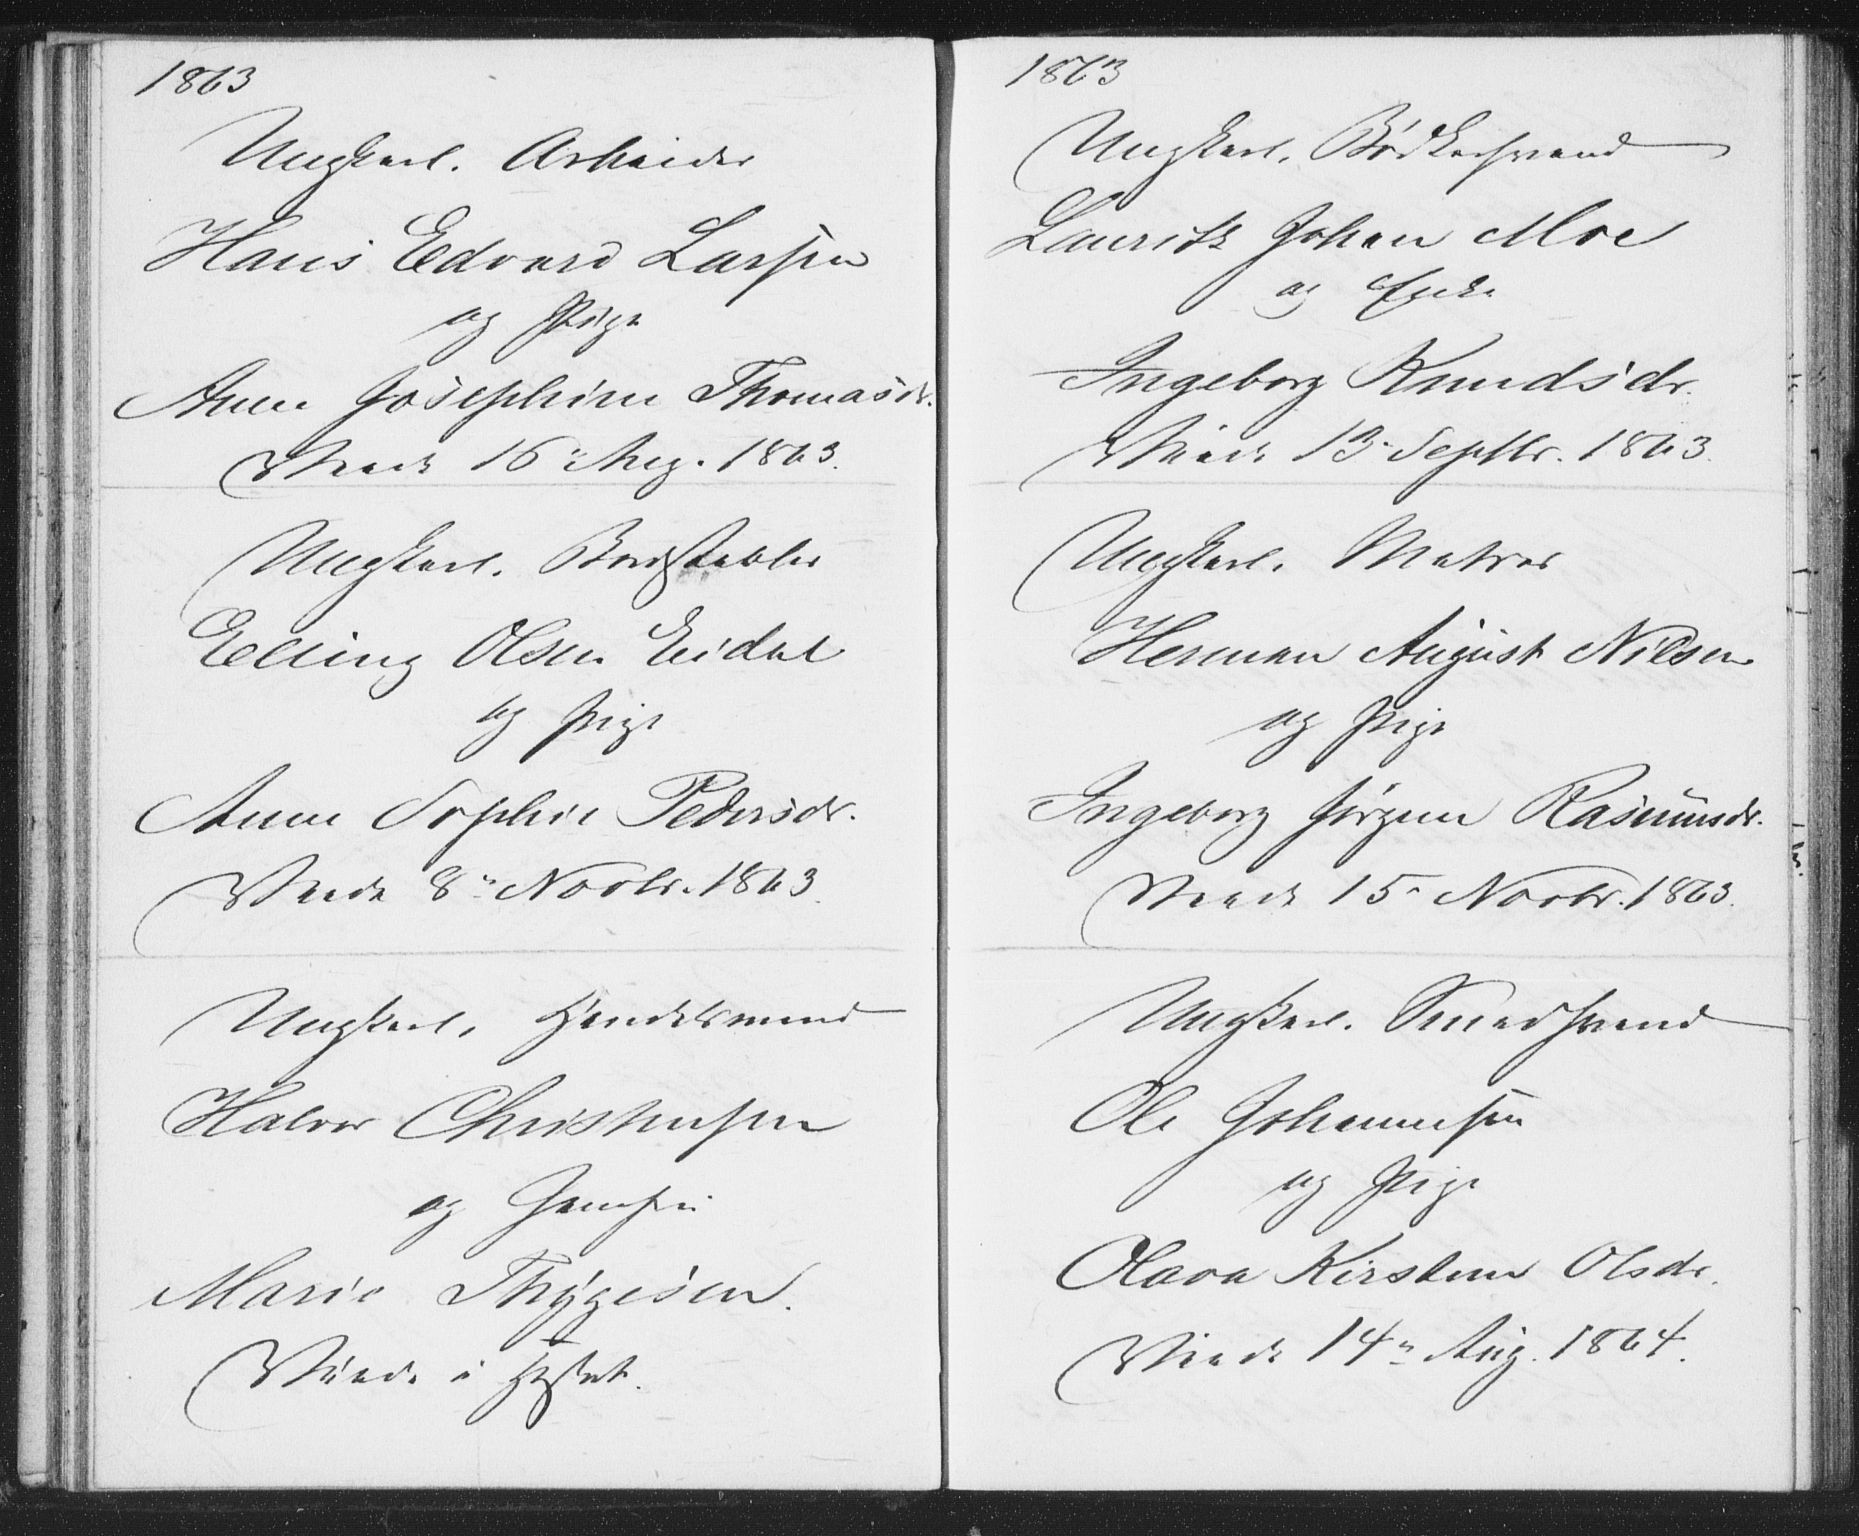 1863
Ungkarl. Arbeider
Hans Edvard Larsen
og Pige
Anne Josephine Thomasdr.
Viede 16 Aug. 1863.
Ungkarl. Bordstabler
Elling Olsen Eidal
og Pige
Anne Sophie Pedersdr.
Viede 8" Novbr. 1863.
Ungkarl. Handelsmand
Halvor Christensen
og Jomfru
Marie Thygesen.
Viede i
1863
Ungkarl. Bødkersvend
Lauritz Johan Moe
og Enke
Ingeborg Knudsdr.
Viede 13" Septbr. 1863.
Ungkarl. Matros
Herman August Nilsen
og Pige
Ingeborg Jørgine Rasmusdr.
Viede 15" Novbr. 1863.
Ungkarl. Smedsvend
Ole Johannesen
og Pige
Olava Kirstine Olsdr.
Viede 14" Aug. 1864.